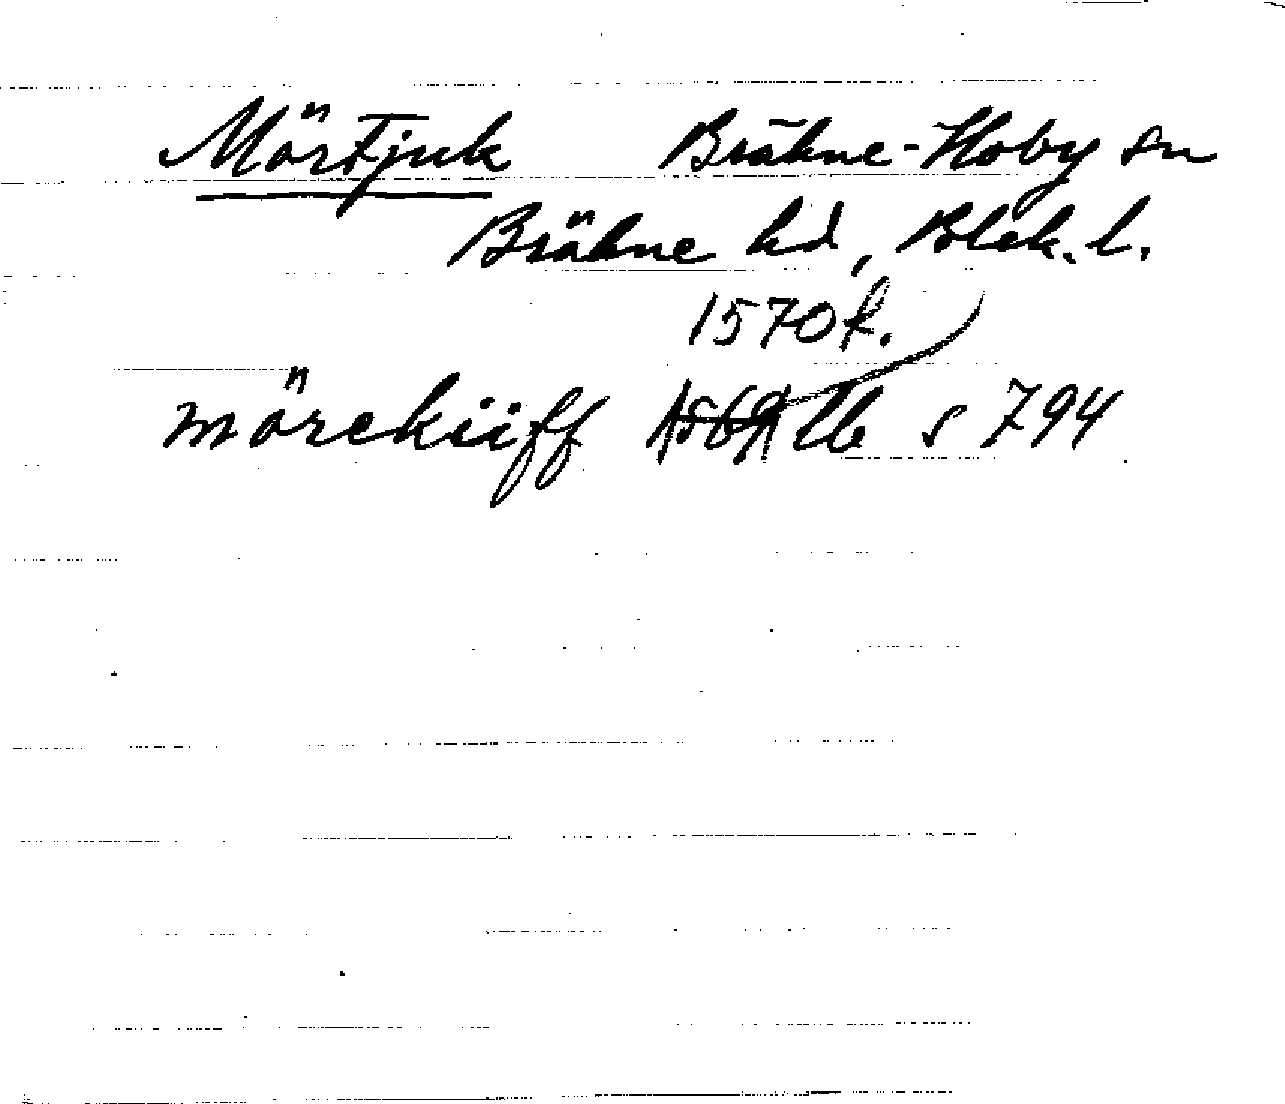 Mörtjuk Bräkne-Hoby sn
Bräkne hd, Blek. l.
1570 k.
mörekiüff 1569 lb s 794